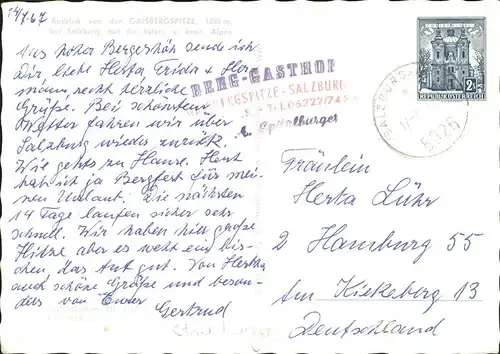 14/7.67
Ausblick von der GAISBERGSPITZE, 1286 m,
bei Salzburg auf die österr. u. bayr. Alpen
Aus hoher Bergeshöh sende ich
Dir, liebe Herta, Frida + Her-
mann, recht herzliche
Grüße. Bei schönstem
Wetter fahren wir über
Salzburg wieder zurück.
Wie gehts zu Hause. Heut
hab ich ja Bergfest für mei-
nen Urlaub. Die nächsten
14 Tage laufen sicher sehr
schnell. Wir haben hier große
Hitze aber es weht ein bis-
chen, das tut gut. Von Hertha
auch schöne Grüße und beson-
ders von Eurer
Gertrud
BERG-GASTHOF
GAISBERGSPITZE-SALZBURG
Tel. 06222/724
Spitalburger
2
REPUBLIK ÖSTERREICH
SALZBURG
5026
Fräulein
Herta Lühr
2 Hamburg 55
Am Kiekeberg 13
Deutschland